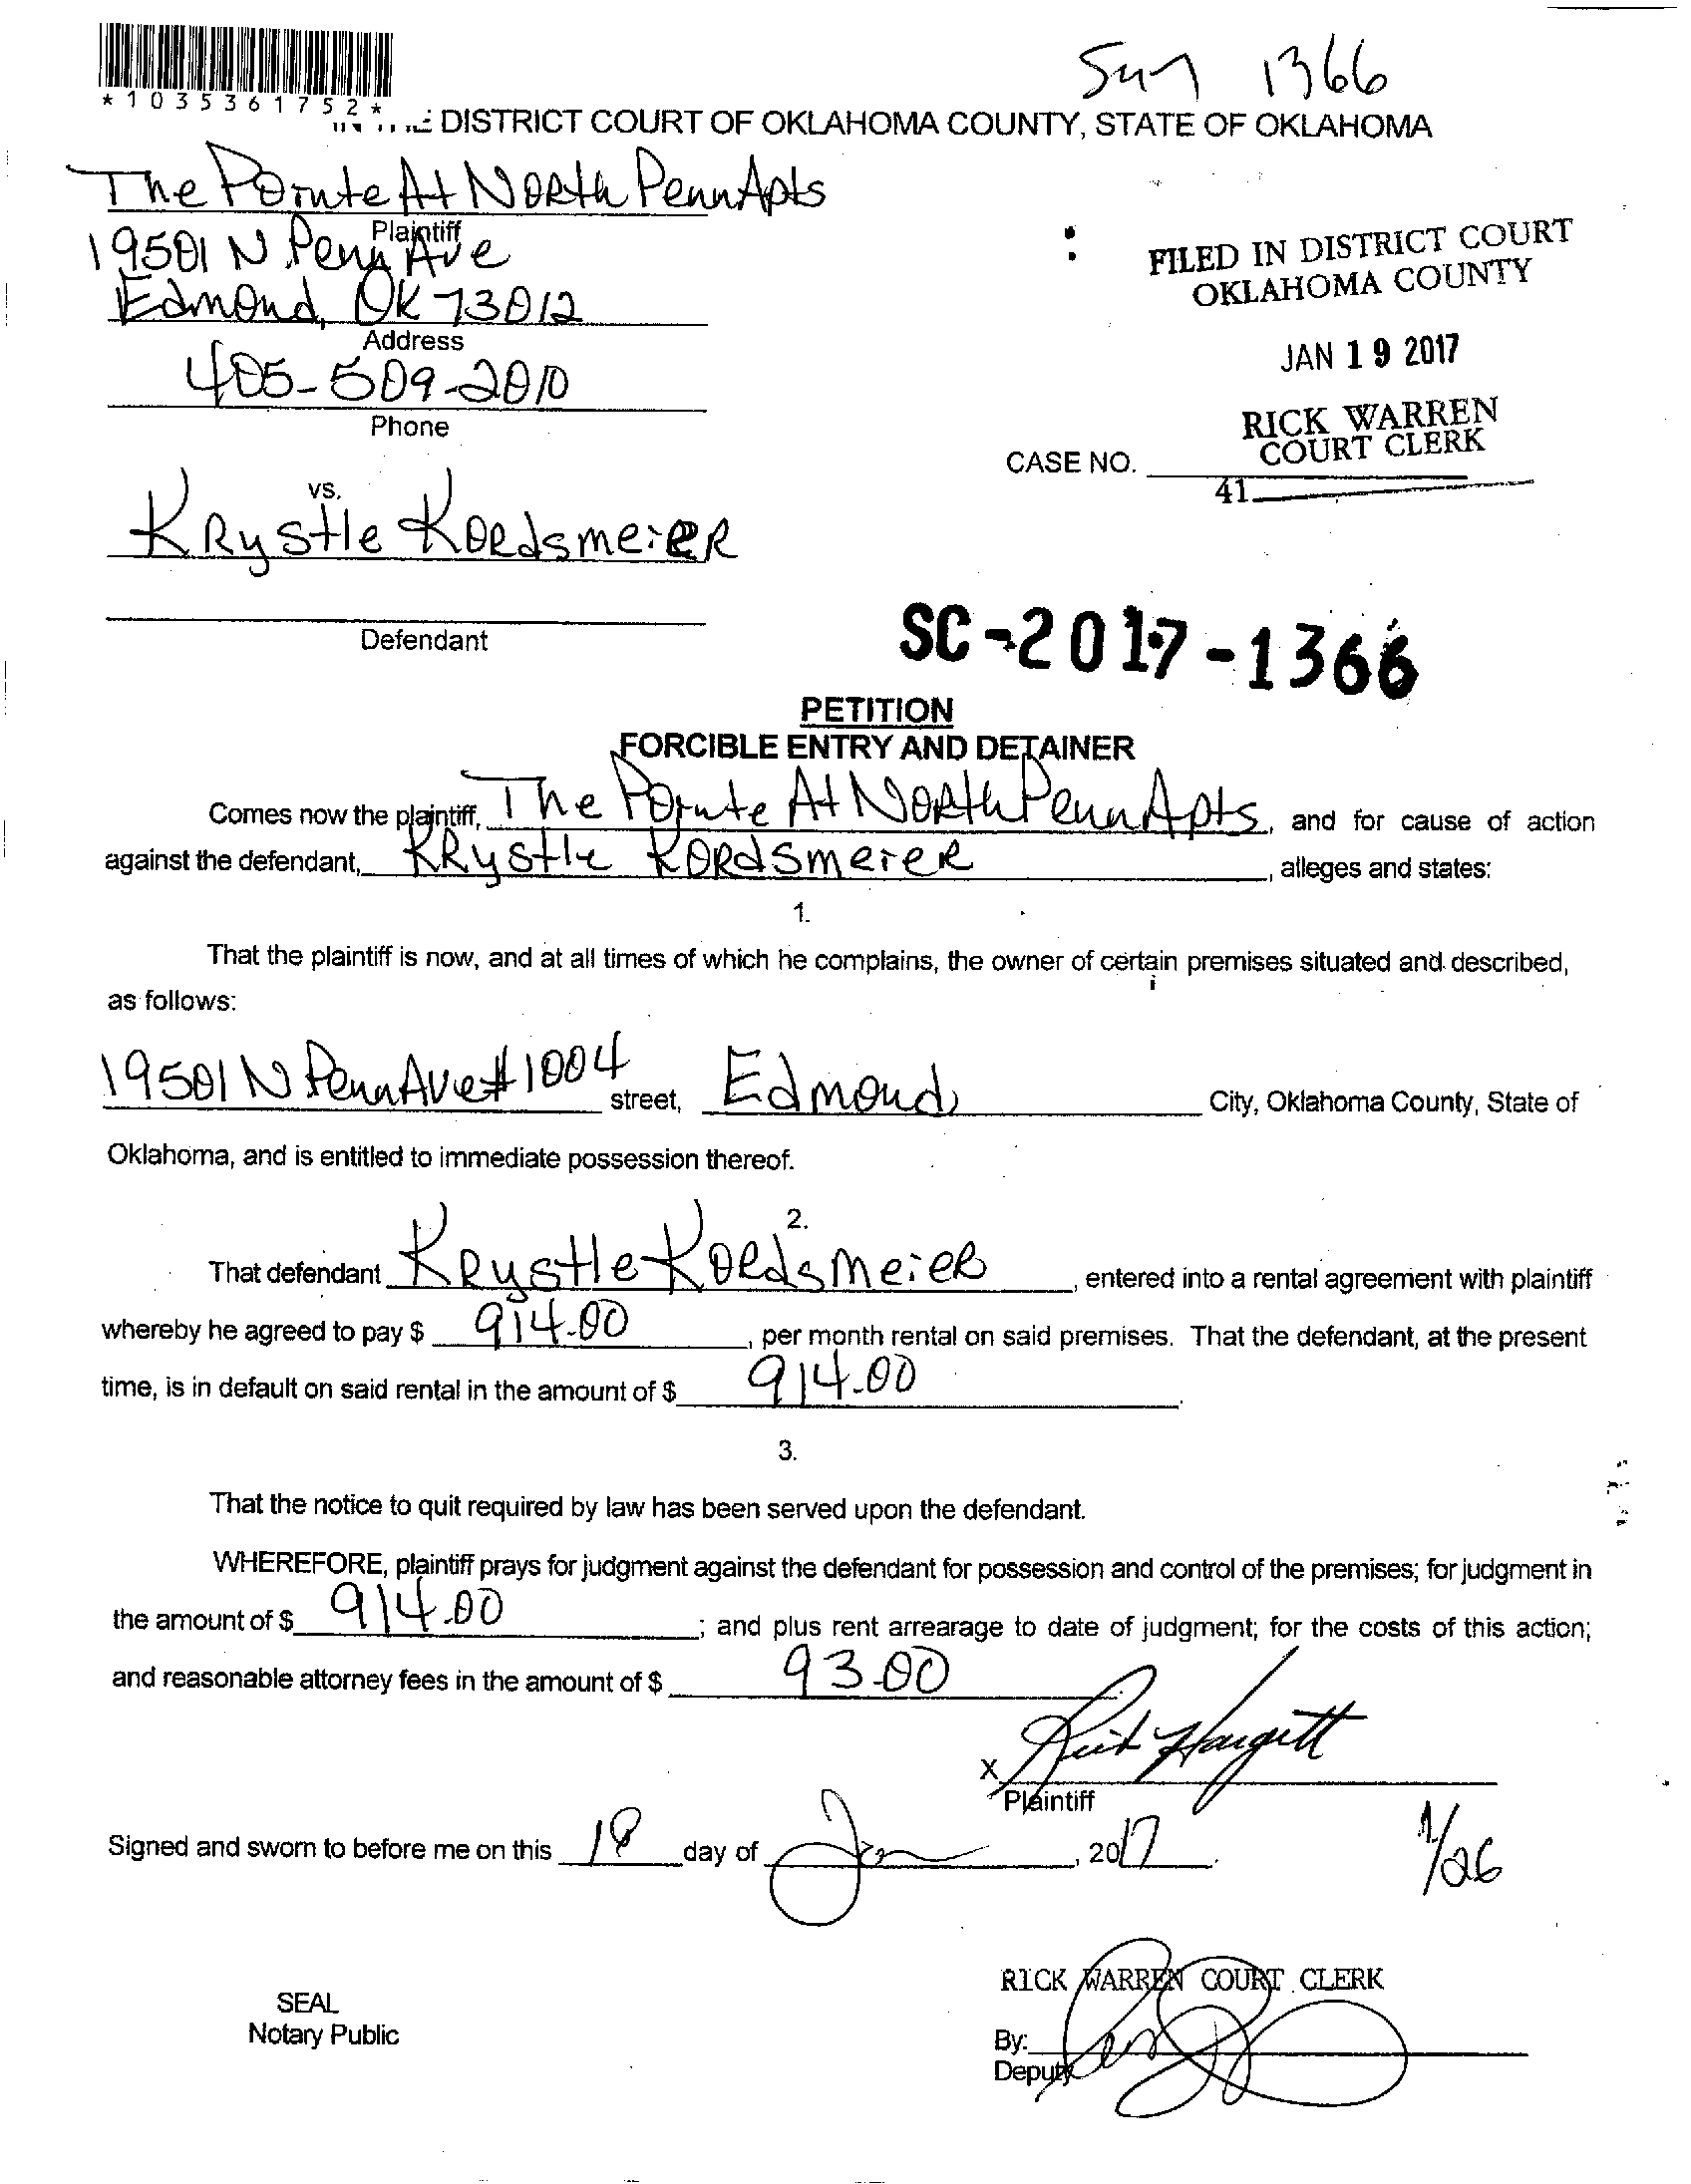 1366
*1035361752*
DISTRICT COURT OF OKLAHOMA COUNTY, STATE OF OKLAHOMA
The Pointe At North Penn Apts
Plaintiff
19501 N Penn Ave
Edmond, OK 73012
Address
405-509-2010
Phone
FILED IN DISTRICT COURT
OKLAHOMA COUNTY
JAN 19 2017
RICK WARREN
COURT CLERK
CASE NO.
41
vs.
Krystle Kordsmeier
Defendant
SC-2017-1366
PETITION
FORCIBLE ENTRY AND DETAINER
Comes now the plaintiff, The Pointe At North Penn Apts, and for cause of action
against the defendant, Krystle Kordsmeier, alleges and states:
1.
That the plaintiff is now, and at all times of which he complains, the owner of certain premises situated and described,
as follows:
19501 N Penn Ave #1004 street, Edmond City, Oklahoma County, State of
Oklahoma, and is entitled to immediate possession thereof.
2.
That defendant Krystle Kordsmeier, entered into a rental agreement with plaintiff
whereby he agreed to pay $ 914.00, per month rental on said premises. That the defendant, at the present
time, is in default on said rental in the amount of $ 914.00.
3.
That the notice to quit required by law has been served upon the defendant.
WHEREFORE, plaintiff prays for judgment against the defendant for possession and control of the premises; for judgment in
the amount of $ 914.00; and plus rent arrearage to date of judgment; for the costs of this action;
and reasonable attorney fees in the amount of $ 93.00
X Hargett
Plaintiff
Signed and sworn to before me on this 18 day of Jan, 2017.
1/26
RICK WARREN COURT CLERK
SEAL
Notary Public
By:
Deputy